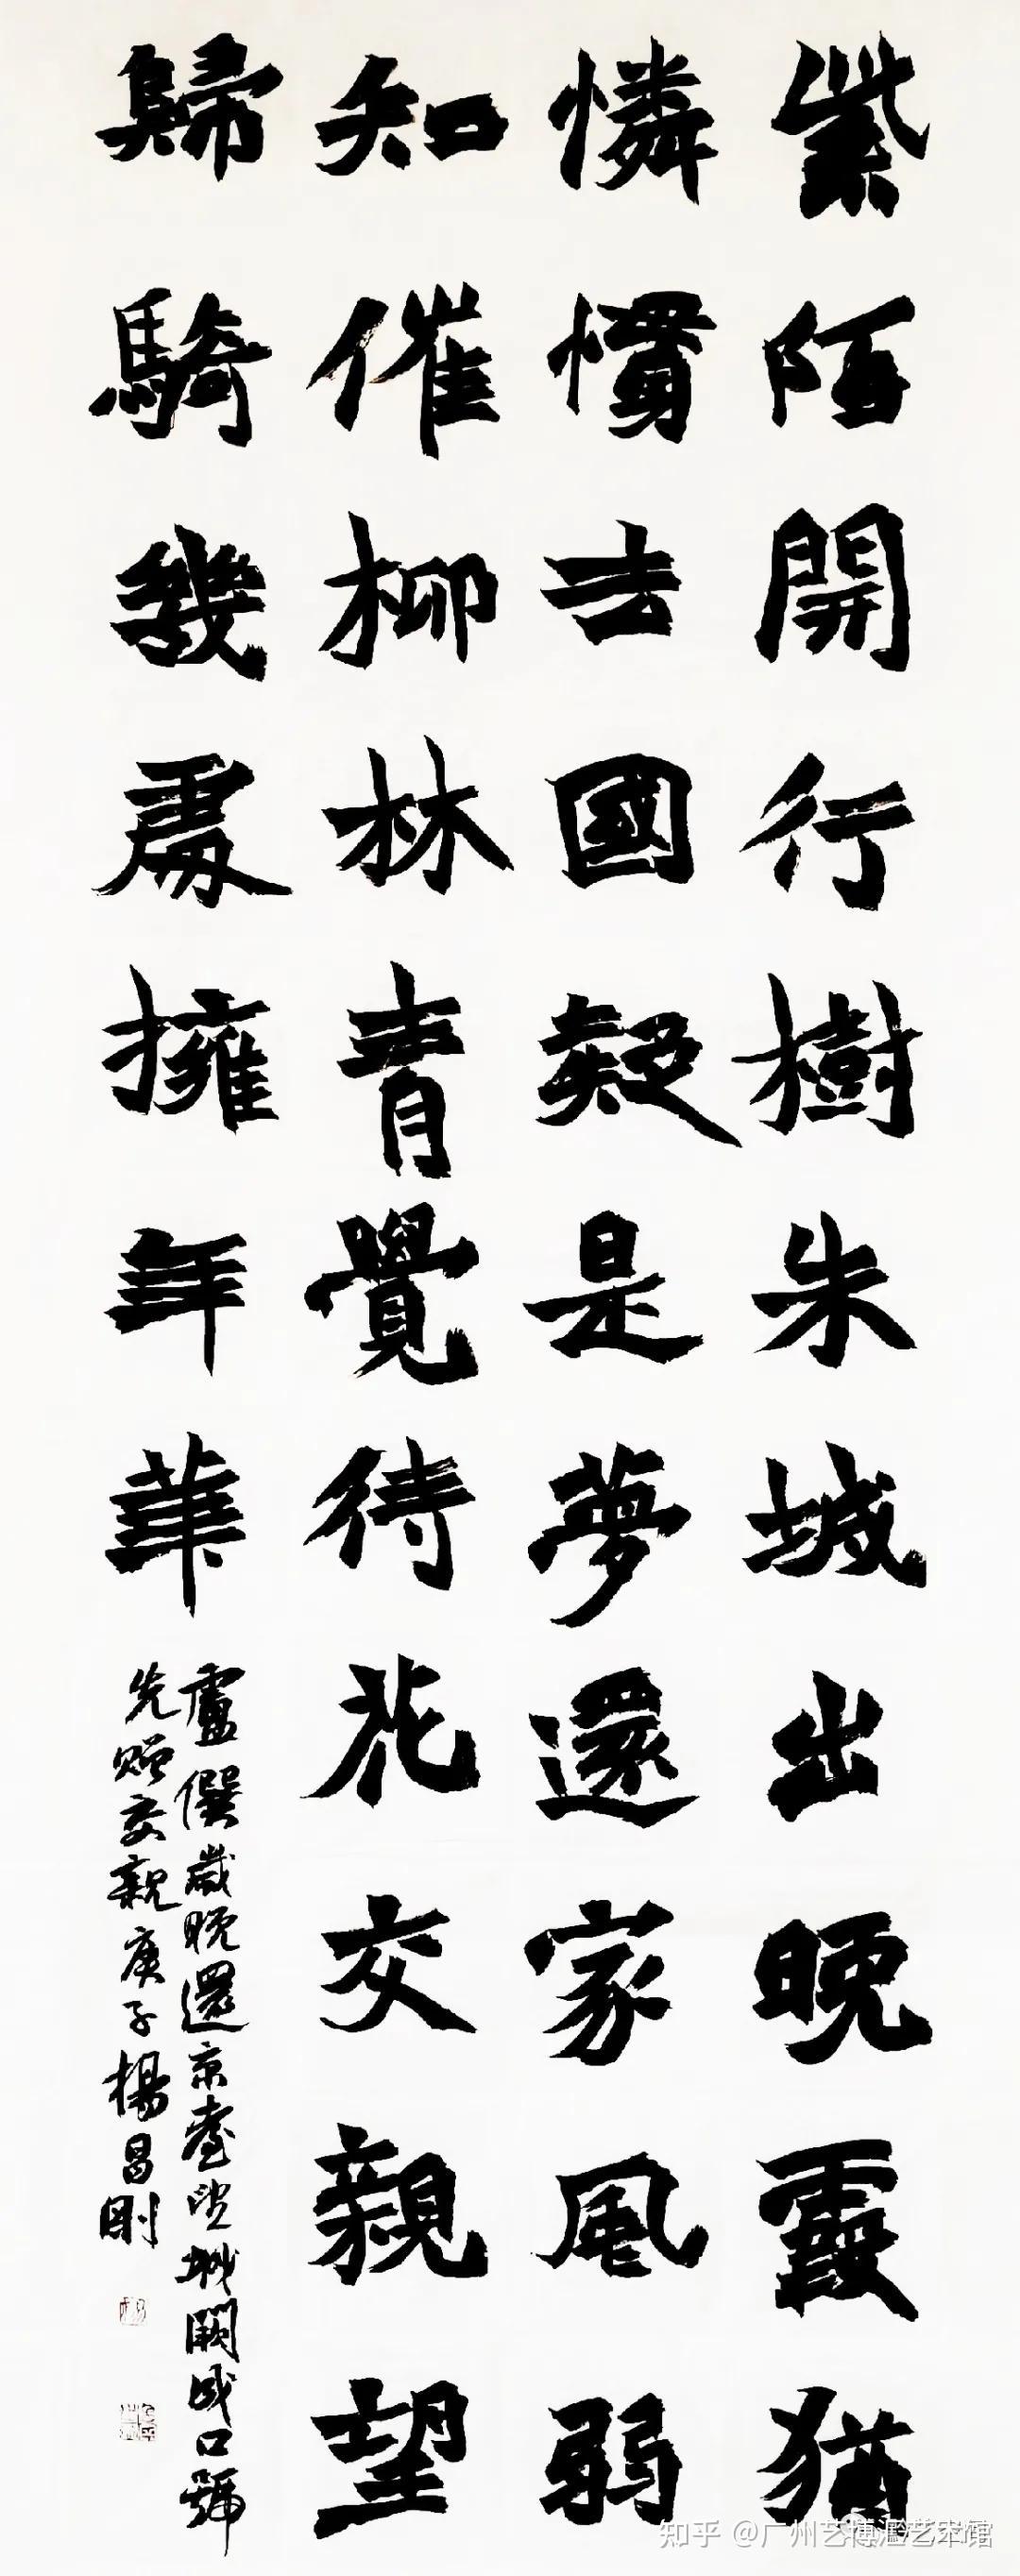 紫陌開行樹朱城出晚霞猶
憐慣去國疑是夢還家風弱
知催柳林青覺待花交親望
歸騎幾處擁年華
盧僎歲晚還京臺望城闕成口號
先贈交親庚子楊昌剛
知乎 @广州艺博滙艺术馆